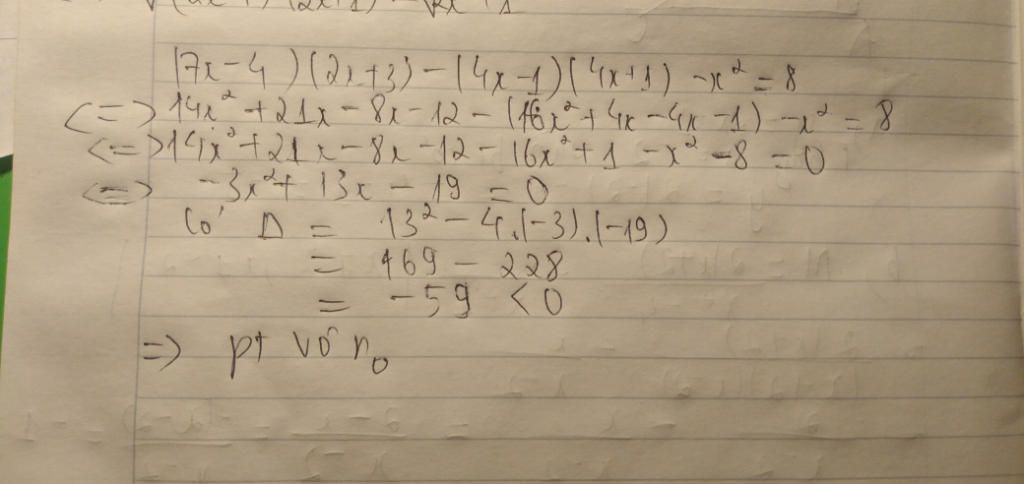 (7x-4)(2x+3)-(4x-1)(4x+1)-x² = 8
<=> 14x² + 21x - 8x - 12 - (16x² + 4x - 4x - 1) - x² = 8
<=> 14x² + 21x - 8x - 12 - 16x² + 1 - x² - 8 = 0
<=> -3x² + 13x - 19 = 0
Có Δ = 13² - 4.(-3).(-19)
= 169 - 228
= -59 < 0
=> pt vô n₀